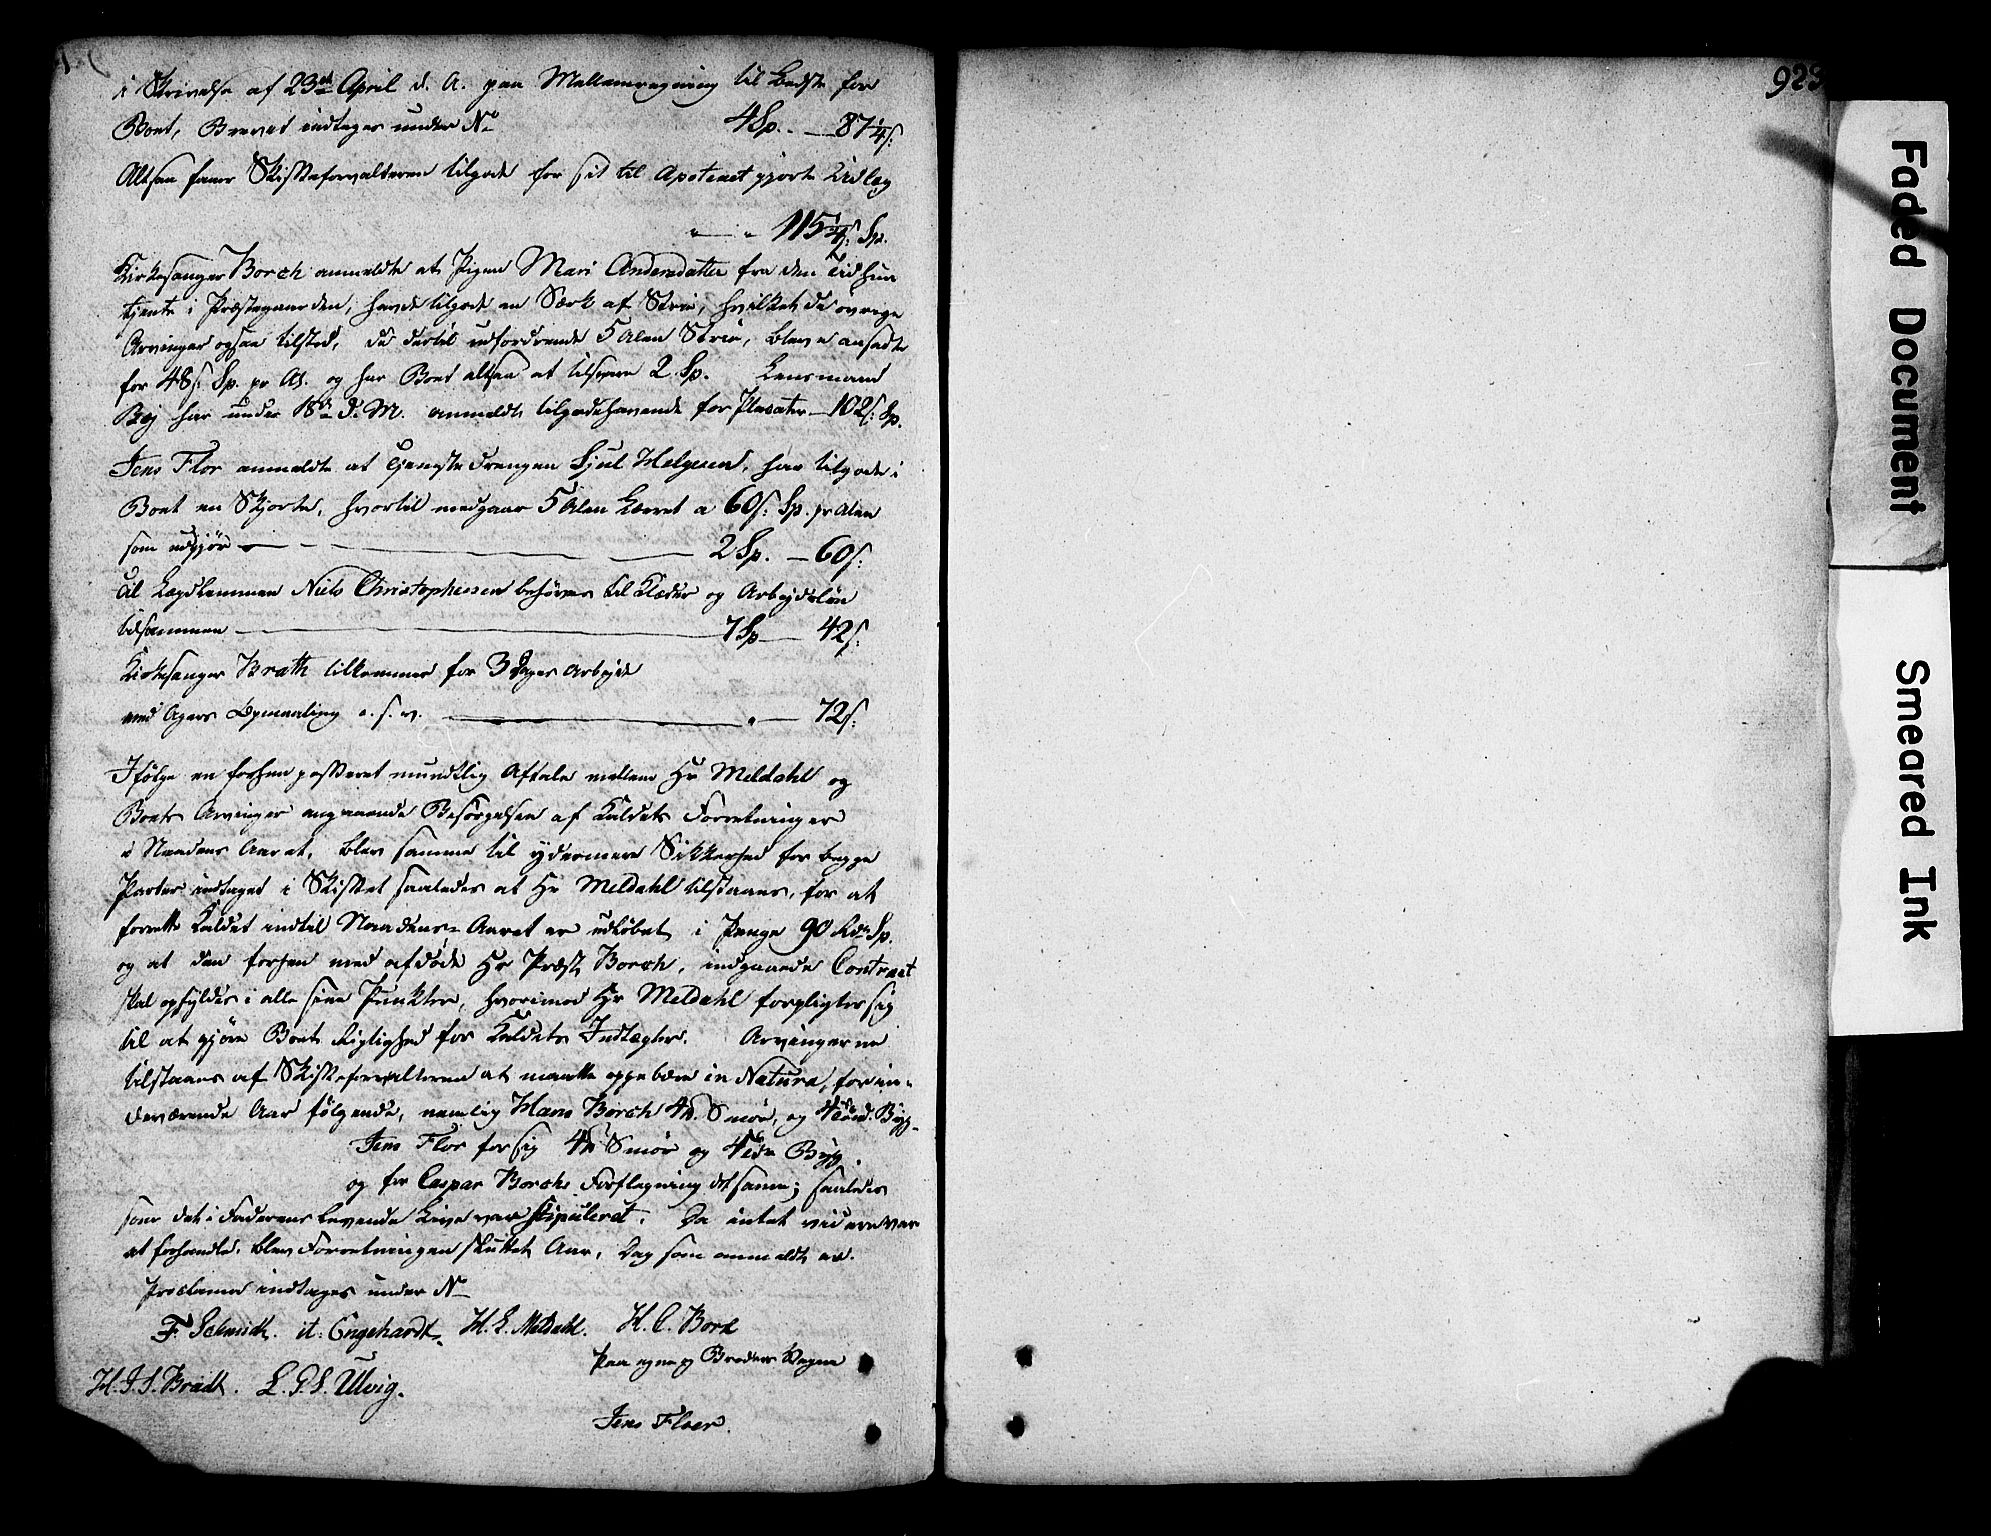 i Skrivelse af 23de April d. A. paa Mellemregning til Bedste for
Boet, Brevet indtages under No 4 Sp. - 87 1/4 s:
Altsaa faaer Skifteforvalteren tilgode for sit til Apoteket gjorte Udlæg
" - " 115 1/4 s: Sp.
Kirkesanger Borch anmeldte at Pigen Mari Andersdatter fra den Tid hun
tjente i Præstegaarden, havde tilgode en Særk af Strie, hvilket de øvrige
Arvinger ogsaa tilstod, de dertil udfordrende 5 Alen Strie, bleve ansadte
for 48 s. Sp. pr Al. og har Boet altsaa at tilsvare 2 Sp. Lensmand
Boj har under 18de d. M. anmeldt tilgodehavende for Placater - 102 s: Sp.
Jens Flor anmeldte at Tjenestedrengen Sjul Helgesen, har tilgode i
Boet en Skjorte, hvortil medgaar 5 Alen Lærret a 60 s: Sp. pr Alen
som udgjør - 2 Sp. - 60 s:
Til Lægdslemmen Niels Christophersen behøves til Klæder og Arbejdsløn
tilsammen - 7 Sp - 42 s:
Kirkesanger Brath tilkommer for 3 Dages Arbejde
med Agers Opmaaling o. s. v. - " - 72 s:
Ifølge en forhen passeret mundtlig Aftale mellem Hr Meldahl og
Boets Arvinger angaaende Besørgelsen af Kaldets Forretninger
i Naadens Aaret, blev samme til ydermere Sikkerhed for begge
Parter indtaget i Skiftet saaledes at Hr Meldahl tilstaaes, for at
forrette Kaldet indtil Naadens-Aaret er udløbet, i Penge 90 Rdr Sp.
og at den forhen med afdøde Hr Præst Borch, indgaaede Contract
skal opfyldes i alle sine Punkter, hvorimod Hr Meldahl forpligter sig
til at gjøre Boet Rigtighed for Kaldets Indtægter. Arvingerne
tilstaaes af Skifteforvalteren at maatte oppebære in Natura, for in-
deværende Aar følgende, nemlig Hans Borch 4 Smør, og 4 Tønd. Byg-
Jens Flor for sig 4 Smør og 4 Tdr Byg
og for Caspar Borchs Forflegning det samme; saaledes
som det i Faderens levende Live var stipuleret. Da intet videre var
at forhandle, blev Forretningen sluttet Aar, Dag som anmeldt er.
Proclama indtages under No
F Schmidt. it: Engehardt. H. L. Meldahl. H. C. Bork
paa egne og Broders Vegne
H. J. S. Bradt. L. P. S. Ulvig.
Jens Floer.
923
Faded Document
Smeared Ink